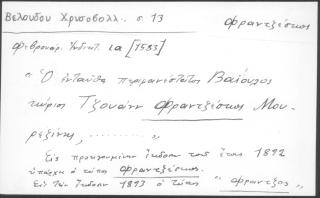 Βελουδου Χρυσοβουλλ. σ 13
Φραντζέσκος
Φεβρουαρ. Ἰνδικτ. ια [1583]
" Ὁ ἐνταῦθα περιφανέστατος Βαΐουλος
κύριος Τζουὰνν Φραντζέσκος Μου-
ρεζίνης, .......... "
Εἰς προηγουμένην ἔκδοσιν τοῦ ἔτους 1892
ὑπάρχει ὁ τύπος Φραντζέσκος.
Εἰς τὴν ἔκδοσιν 1893 ὁ τύπος " Φραντζος "